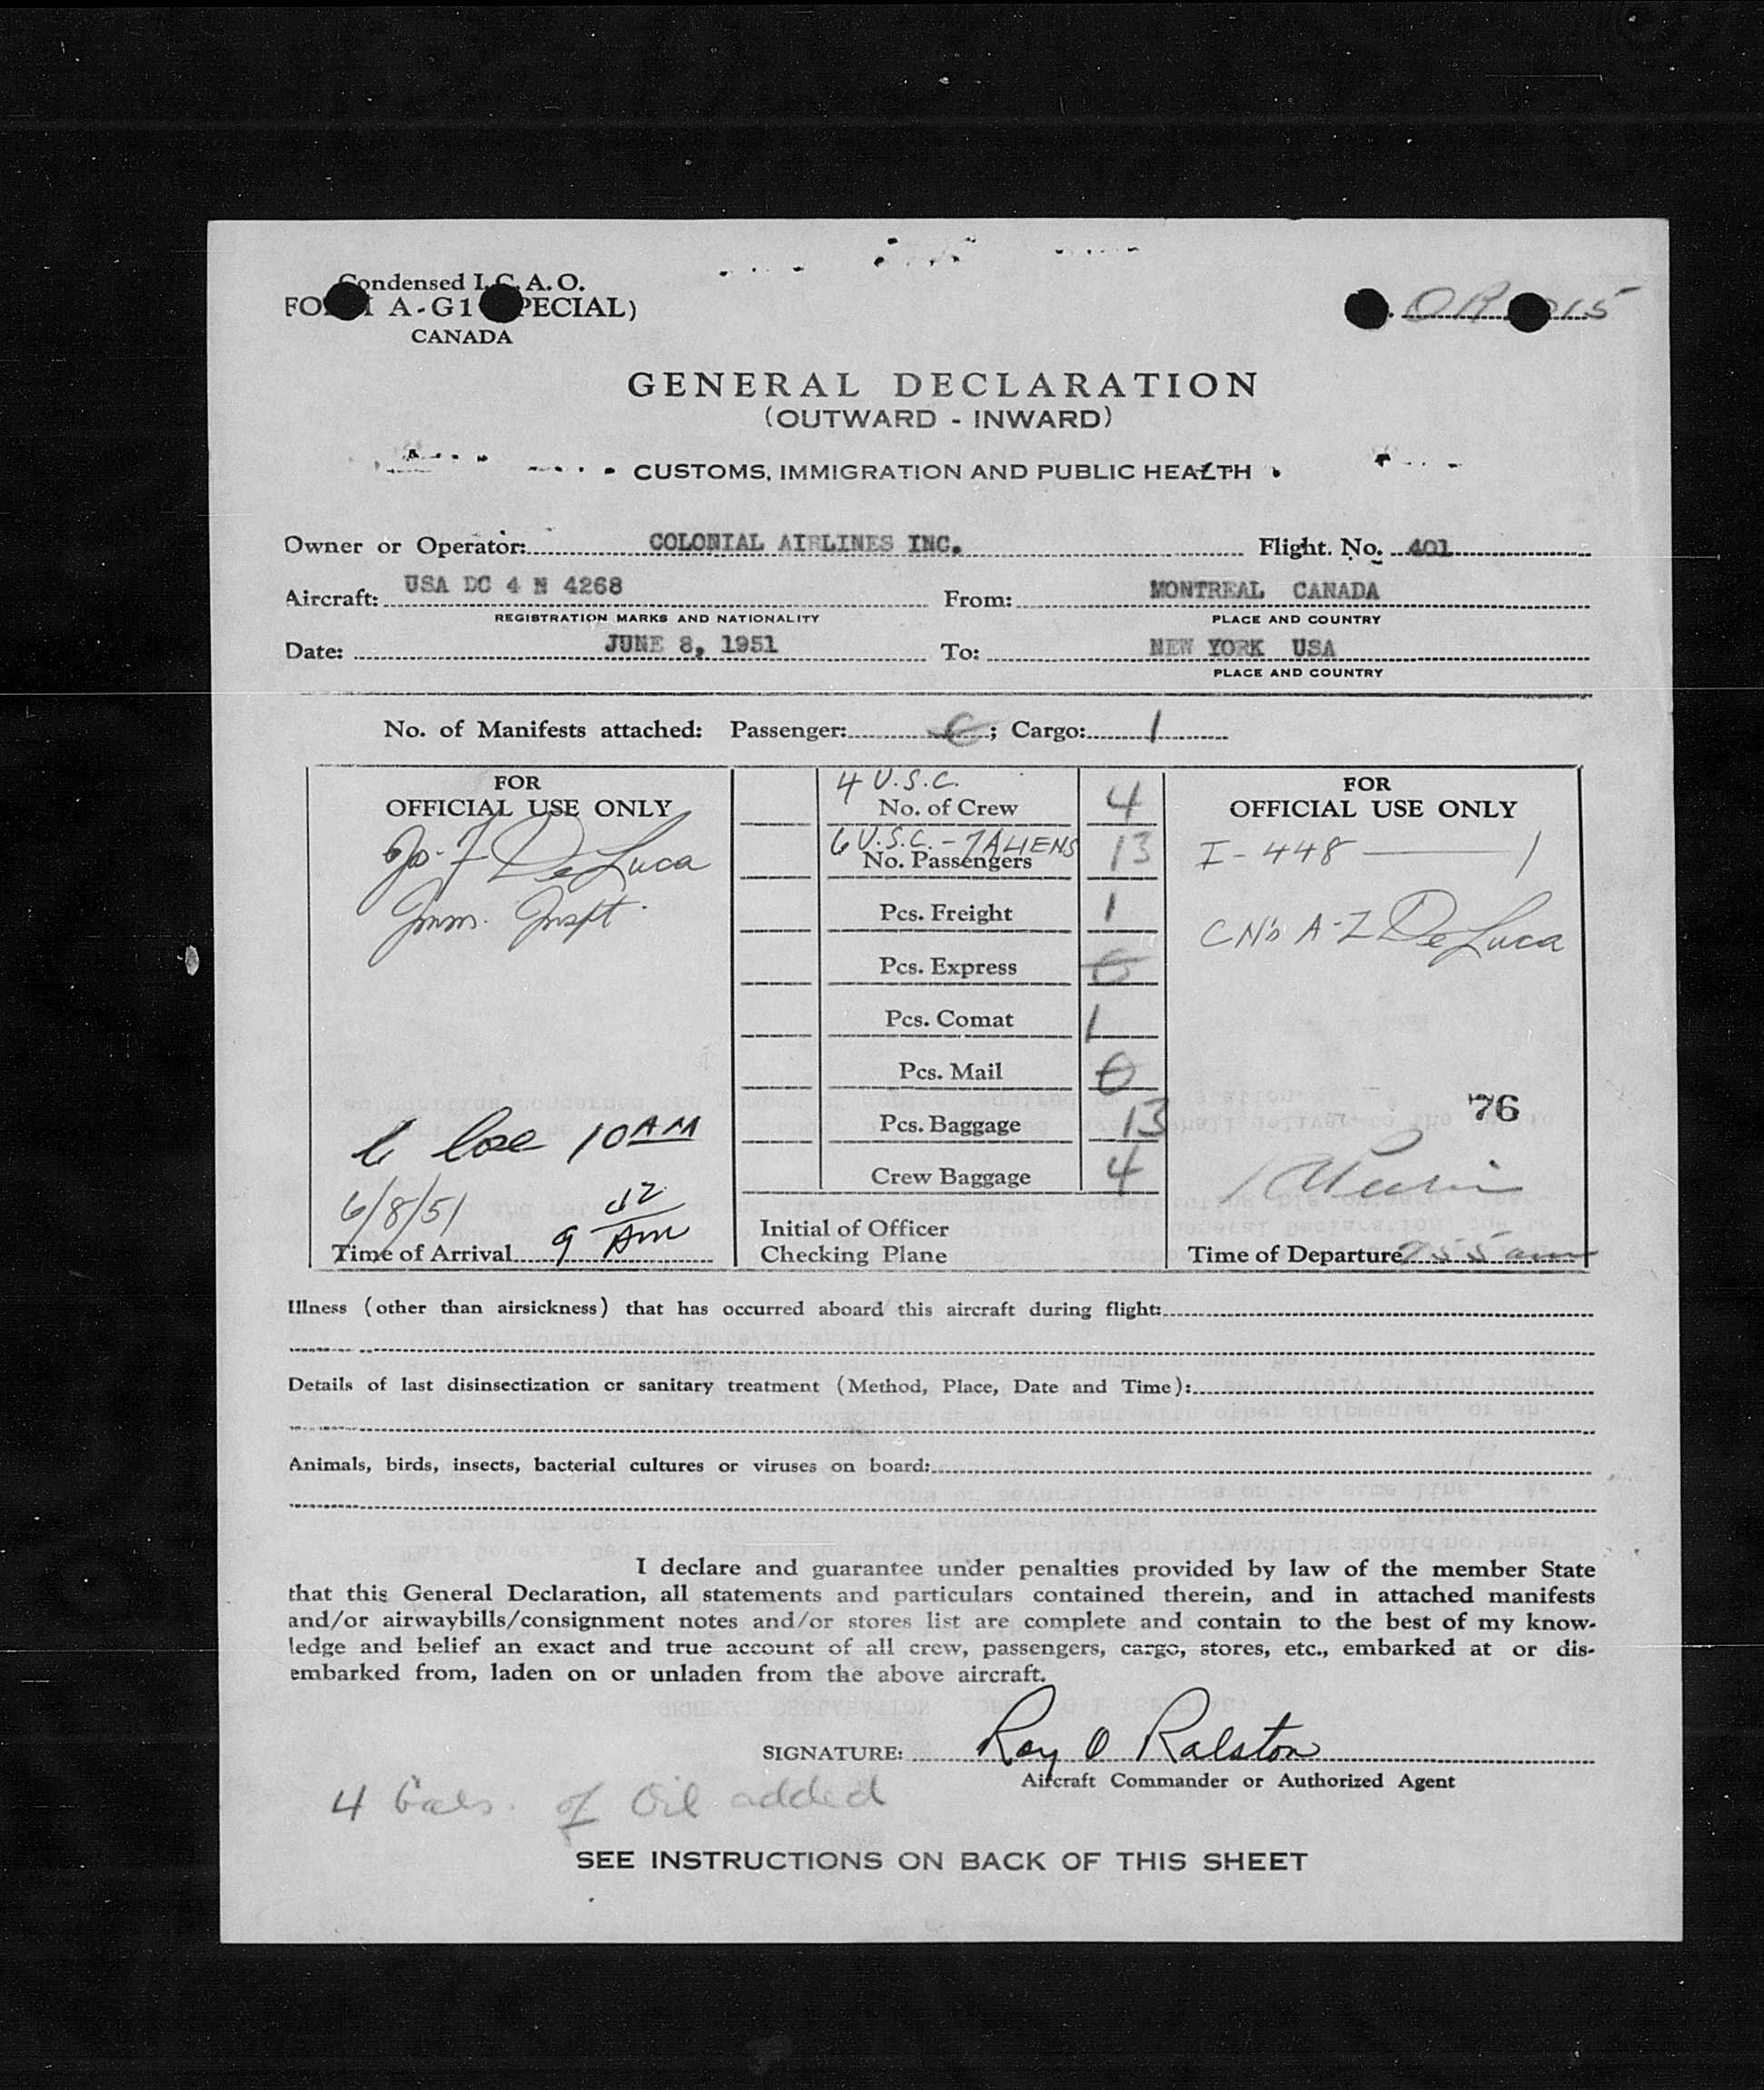 Condensed I.C.A.O.
FORM A-G1 (SPECIAL)
CANADA
GENERAL DECLARATION
(OUTWARD - INWARD)
CUSTOMS, IMMIGRATION AND PUBLIC HEALTH
Owner or Operator: COLONIAL AIRLINES INC. Flight. No. 401
Aircraft: USA DC 4 N 4268 From: MONTREAL CANADA
REGISTRATION MARKS AND NATIONALITY PLACE AND COUNTRY
Date: JUNE 8, 1951 To: NEW YORK USA
PLACE AND COUNTRY
No. of Manifests attached: Passenger: ; Cargo: 1
FOR
OFFICIAL USE ONLY
De Luca
Imm. Inspt.
10 AM
6/8/51
Time of Arrival 9 AM
4 U.S.C.
No. of Crew 4
6 U.S.C. - 7 ALIENS
No. Passengers 13
Pcs. Freight 1
Pcs. Express 0
Pcs. Comat 1
Pcs. Mail 0
Pcs. Baggage 13
Crew Baggage 4
Initial of Officer
Checking Plane
FOR
OFFICIAL USE ONLY
I-448 — 1
De Luca
76
Time of Departure 955 am
Illness (other than airsickness) that has occurred aboard this aircraft during flight:
Details of last disinsectization or sanitary treatment (Method, Place, Date and Time):
Animals, birds, insects, bacterial cultures or viruses on board:
I declare and guarantee under penalties provided by law of the member State
that this General Declaration, all statements and particulars contained therein, and in attached manifests
and/or airwaybills/consignment notes and/or stores list are complete and contain to the best of my know-
ledge and belief an exact and true account of all crew, passengers, cargo, stores, etc., embarked at or dis-
embarked from, laden on or unladen from the above aircraft.
SIGNATURE: Roy O Ralston
Aircraft Commander or Authorized Agent
4 Gals. of Oil added
SEE INSTRUCTIONS ON BACK OF THIS SHEET